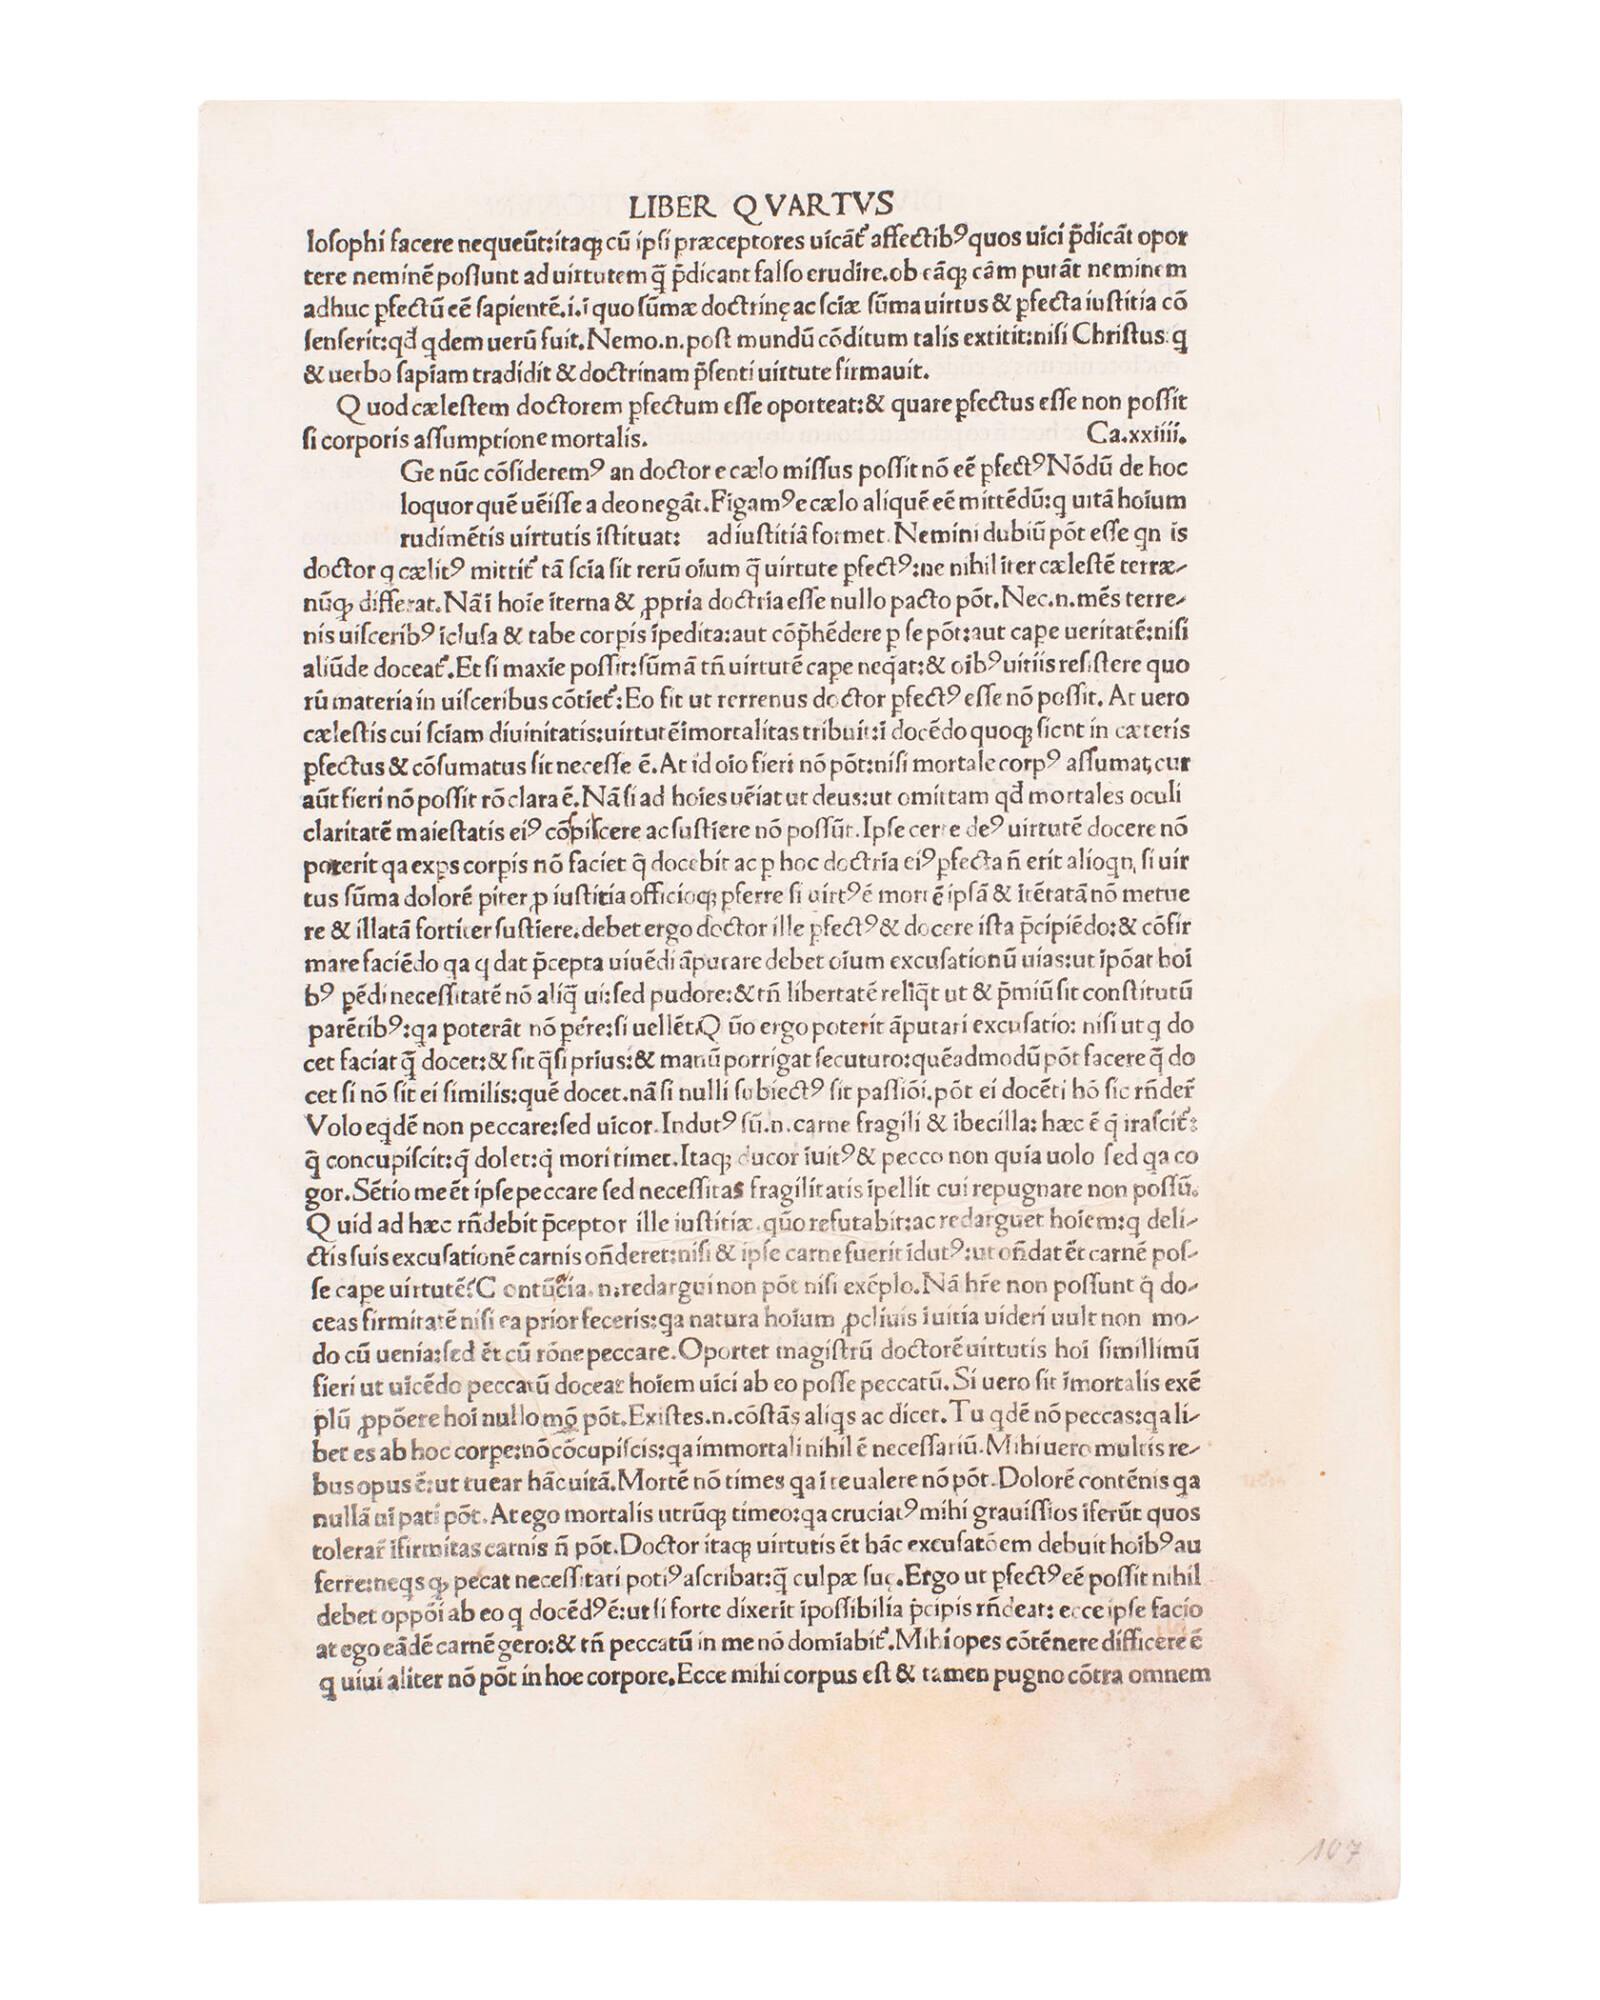 LIBER QVARTVS
losophi facere nequeūt:itaqꝫ cū ipsi præceptores uicāt᷑ affectibꝰ quos uici p̄dicāt opor
tere neminē possunt ad uirtutem q̄ p̄dicant falso erudire.ob eāqꝫ cām putāt neminem
adhuc ꝑfectū eē sapientē.i.ī quo sūmæ doctrinę ac sciæ sūma uirtus & ꝑfecta iustitia cō
senserit:qđ qdem uerū fuit.Nemo.n.post mundū cōditum talis extitit:nisi Christus:q
& uerbo sapiam tradidit & doctrinam p̄senti uirtute firmauit.
Quod cælestem doctorem ꝑfectum esse oporteat:& quare ꝑfectus esse non possit
si corporis assumptione mortalis. Ca.xxiiii.
Ge nūc cōsideremꝰ an doctor e cælo missus possit nō eē ꝑfectꝰ Nōdū de hoc
loquor quē uēisse a deo negāt.Figamꝰ e cælo aliquē eē mittēdū:q uitā hoium
rudimētis uirtutis īstituat: ad iustitiā formet.Nemini dubiū pōt esse qn is
doctor q cælitꝰ mittit᷑ tā scīa sit rerū oīum q̄ uirtute ꝑfectꝰ:ne nihil īter cælestē terræ-
nūqꝫ differat.Nā ī hoīe īterna & ꝓpria doctrīa esse nullo pacto pōt.Nec.n.mēs terre-
nis uisceribꝰ īclusa & tabe corpis īpedita:aut cōp̄hēdere ꝑ se pōt:aut cape ueritatē:nisi
aliūde doceat᷑.Et si maxīe possit:sūmā tn̄ uirtutē cape neq̄at:& oībꝰ uitiis resistere quo
rū materia in uisceribus cōtīet᷑:Eo fit ut rerrenus doctor ꝑfectꝰ esse nō possit.At uero
cælestis cui sciam diuinitatis:uirtutē īmortalitas tribuit:ī docēdo quoqꝫ sicut in cæteris
ꝑfectus & cōsumatus sit necesse ē.At id oīo fieri nō pōt:nisi mortale corpꝰ assumat,cur
aūt fieri nō possit rō clara ē.Nā si ad hoīes uēiat ut deus:ut omittam qđ mortales oculi
claritatē maiestatis eiꝰ cōspicere ac sustīere nō possūt.Ipse certe deꝰ uirtutē docere nō
poterit qa exꝑs corpis nō faciet q̄ docebit ac ꝑ hoc doctrīa eiꝰ ꝑfecta n̄ erit alioqn,si uir
tus sūma dolorē ꝑīter ꝓ iustitia officioqꝫ ꝑferre si uirtꝰ ē mortē ipsā & ītētatā nō metue
re & illatā fortiter sustīere.debet ergo doctor ille ꝑfectꝰ & docere ista p̄cipiēdo:& cōfir
mare faciēdo qa q dat p̄cepta uiuēdi āputare debet oīum excusationū uias:ut īpōat hoī
bꝰ pēdi necessitatē nō aliq̄ ui:sed pudore:& tn̄ libertatē reliq̄t ut & p̄miū sit constitutū
parētibꝰ:qa poterāt nō pēre:si uellēt.Q ūo ergo poterit āputari excusatio: nisi ut q do
cet faciat q̄ docet:& sit q̄si prius:& manū porrigat secuturo:quēadmodū pōt facere q̄ do
cet si nō sit ei similis:quē docet.nā si nulli subiectꝰ sit passiōi.pōt ei docēti hō sic rn̄der̄
Volo eqdē non peccare:sed uīcor.Indutꝰ sū.n.carne fragili & ībecilla: hæc ē q̄ irascit᷑:
q̄ concupiscit:q̄ dolet:q̄ mori timet.Itaqꝫ ducor īuitꝰ & pecco non quia uolo sed qa co
gor.Sētio me ēt ipse peccare sed necessitas fragilitatis īpellit cui repugnare non possū.
Quid ad hæc rn̄debit p̄ceptor ille iustitiæ.quo refutabit:ac redarguet hoīem:q deli-
ctis suis excusationē carnis on̄deret:nisi & ipse carne fuerit īdutꝰ:ut on̄dat ēt carnē pos-
se cape uirtutē? Contūcīa.n:redargui non pōt nisi exēplo.Nā hr̄e non possunt q̄ do-
ceas firmitatē nisi ea prior feceris:qa natura hoīum ꝓcliuis ī uitia uideri uult non mo-
do cū uenia:sed ēt cū rōne peccare.Oportet magistrū doctorē uirtutis hoī simillimū
fieri ut uīcēdo peccatū doceat hoīem uīci ab eo posse peccatū.Si uero sit īmortalis exē
plū ꝓpōere hoī nullo mō pōt.Existes.n.cōstās aliqs ac dicet.Tu qdē nō peccas:qa li-
ber es ab hoc corpe:nō cōcupiscis:qa immortali nihil ē necessariū.Mihi uero multis re-
bus opus ē:ut tuear hāc uitā.Mortē nō times qa ī te ualere nō pōt.Dolorē contēnis qa
nullā uī pati pōt.At ego mortalis utrūqꝫ timeo:qa cruciatꝰ mihi grauissīos īferūt quos
tolerar̄ īfirmitas carnis n̄ pōt.Doctor itaqꝫ uirtutis ēt hāc excusatōem debuit hoībꝰ au
ferre:neqs qꝫ pecat necessitati potiꝰ ascribat:q̄ culpæ suę.Ergo ut ꝑfectꝰ eē possit nihil
debet oppōi ab eo q docēdꝰ ē:ut si forte dixerit īpossibilia p̄cipis rn̄deat: ecce ipse facio
at ego eādē carnē gero:& tn̄ peccatū in me nō domīabit᷑.Mihi opes cōtēnere difficere ē
q uiui aliter nō pōt in hoc corpore.Ecce mihi corpus est & tamen pugno cōtra omnem
107